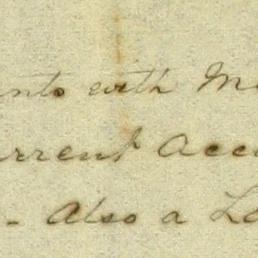 nts with M
urrent Acc
- Also a L